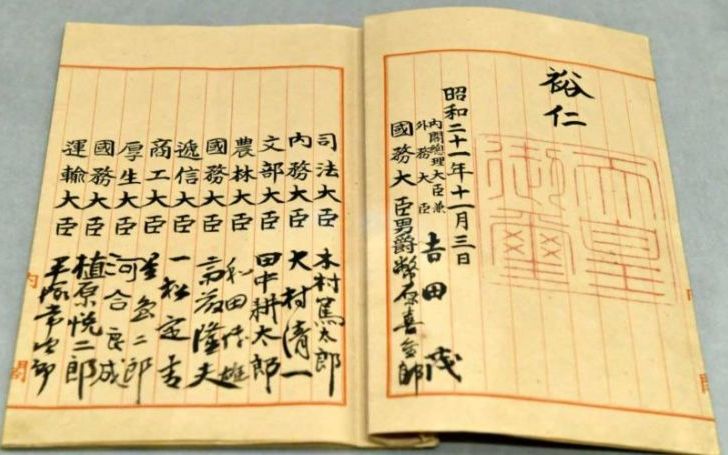 裕仁
天皇御璽
昭和二十一年十一月三日
内閣総理大臣兼
外務大臣 吉田茂
國務大臣 男爵幣原喜重郎
司法大臣 木村篤太郎
内務大臣 大村清一
文部大臣 田中耕太郎
農林大臣 和田博雄
國務大臣 斎藤隆夫
逓信大臣 一松定吉
商工大臣 星島二郎
厚生大臣 河合良成
國務大臣 植原悦二郎
運輸大臣 平塚常次郎
内
閣
内
閣